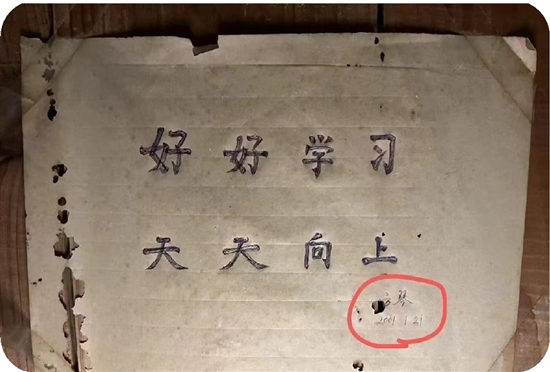 好好学习
天天向上
琴
2001.1.21